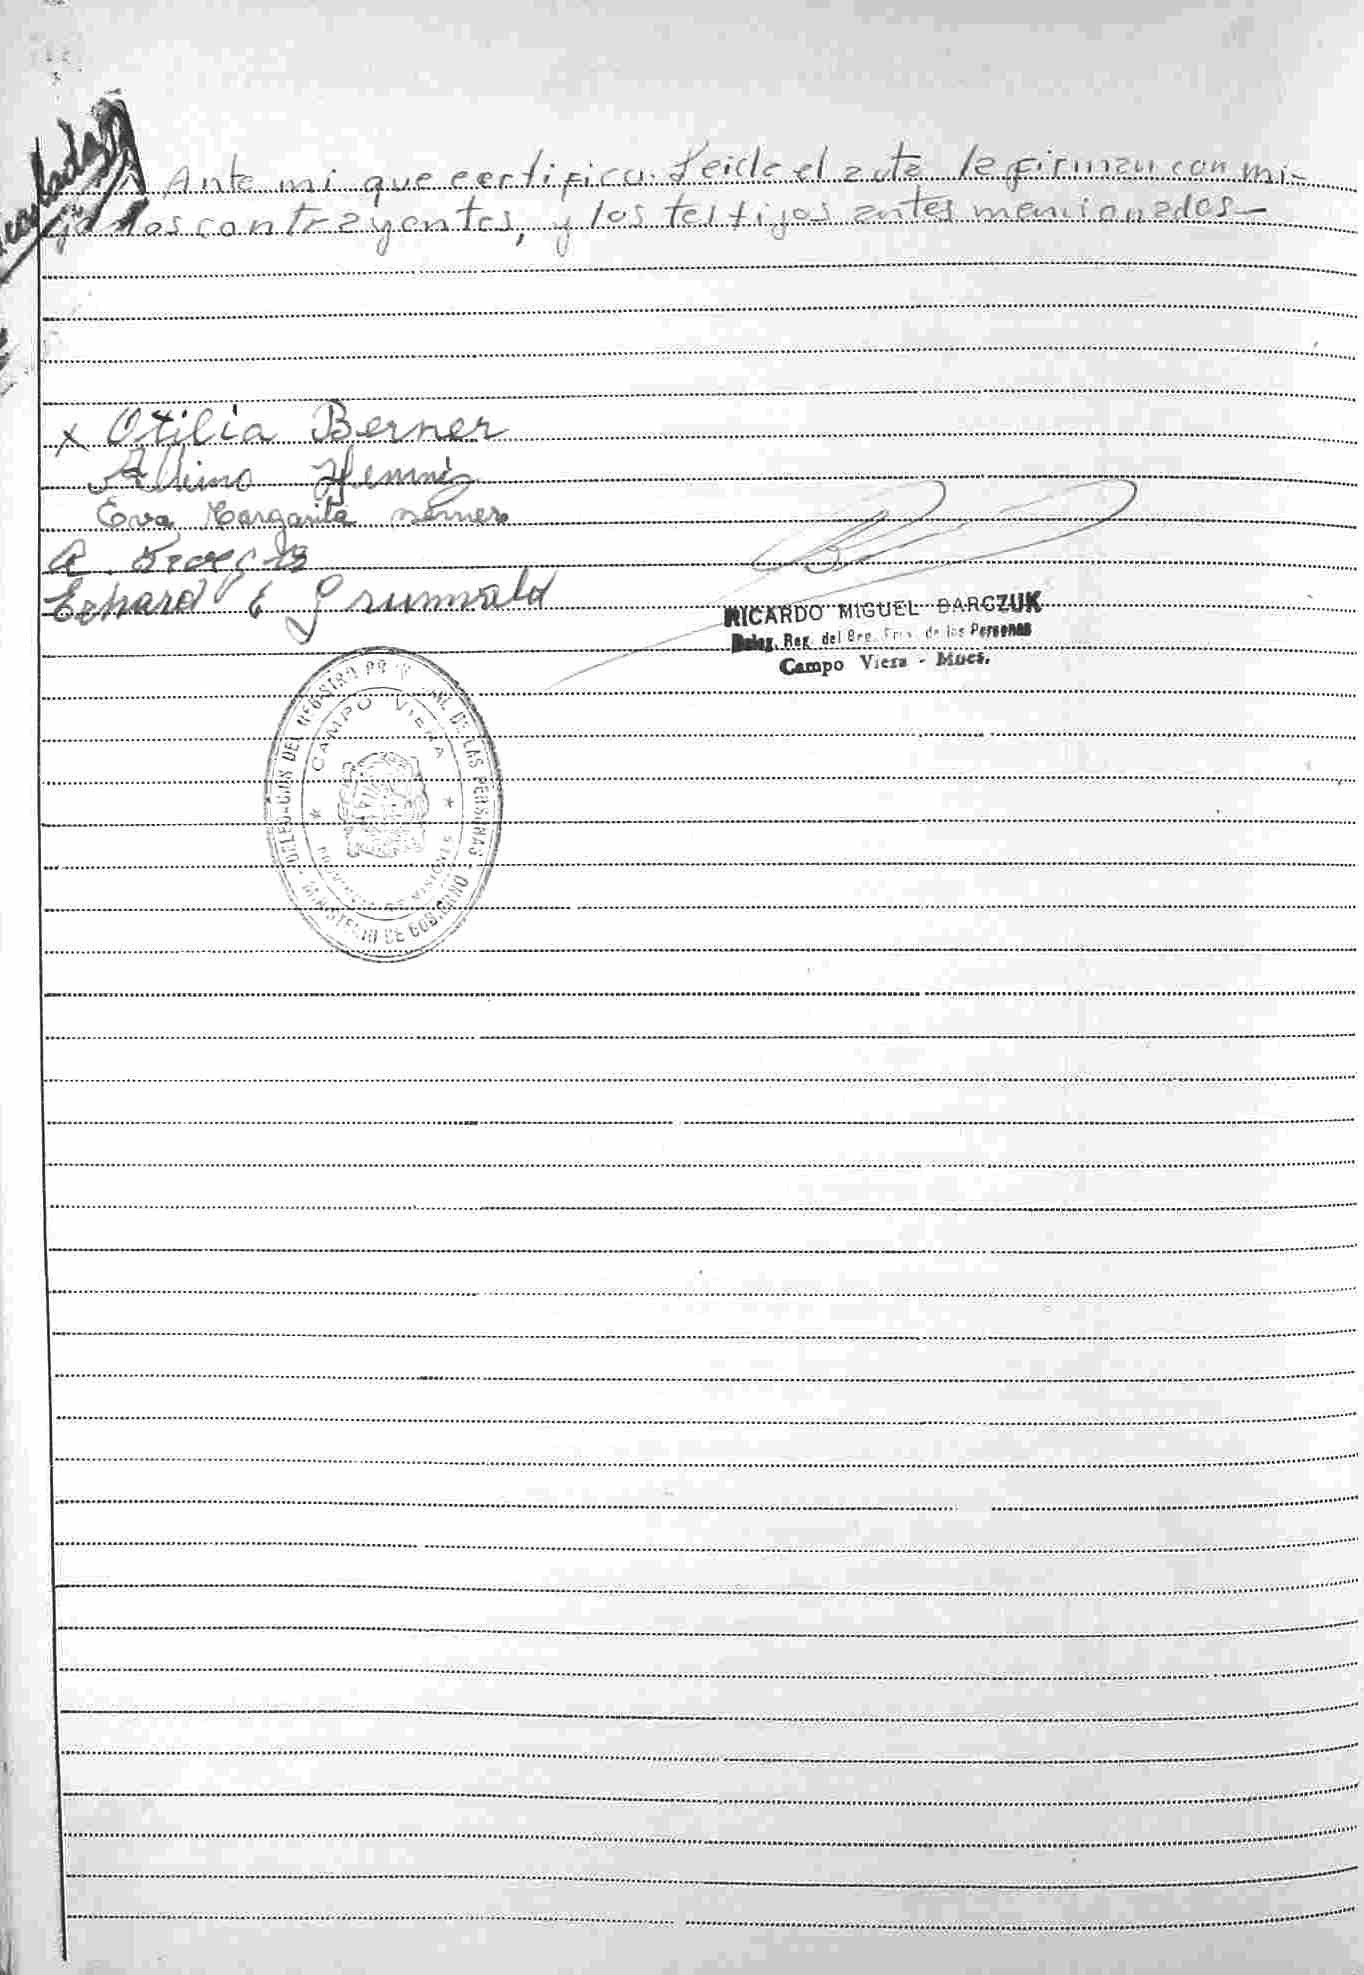 Ante mi que certifica. Leida el acta la firman con mi-
go los contrayentes, y los testigos antes mencionados-
x Otilia Berner
Albino Hennig
Eva Margarita Berner
A.
Erhard E Grunwald
RICARDO MIGUEL BARCZUK
Deleg. Reg. del Reg. Prov. de las Personas
Campo Viera - Mnes.
DELEGACION DEL REGISTRO PROVINCIAL DE LAS PERSONAS
CAMPO VIERA
PROVINCIA DE MISIONES
MINISTERIO DE GOBIERNO